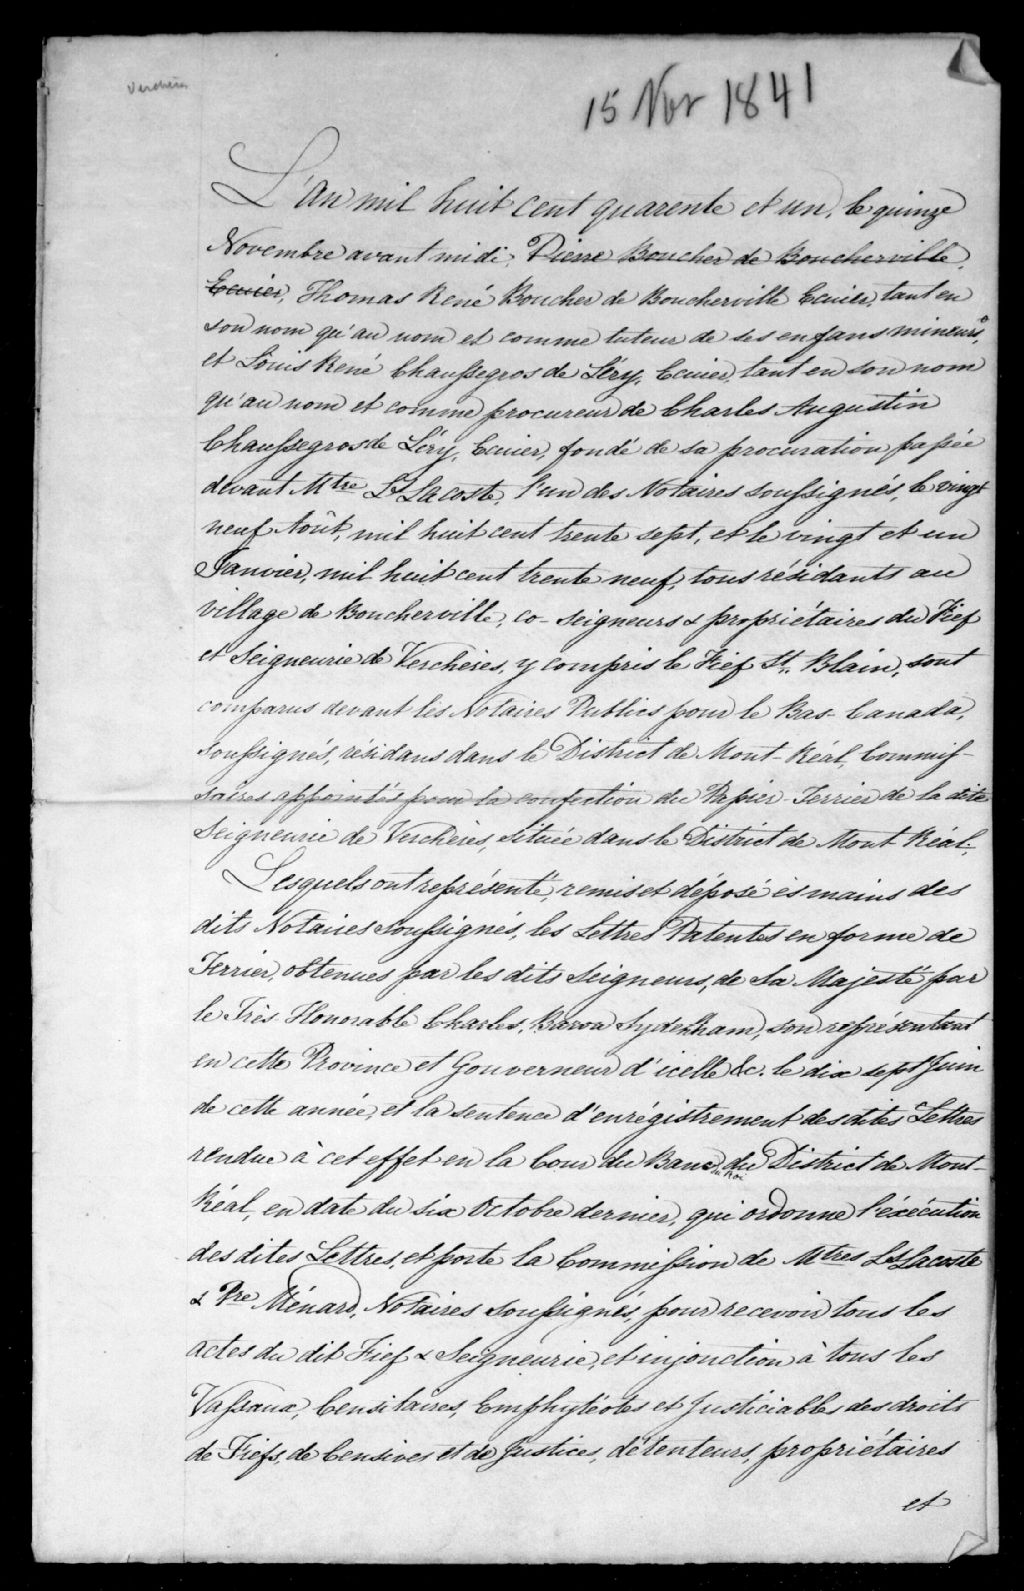 Verchères
15 Nov 1841
L'An mil huit cent quarente et un, le quinze
Novembre avant midi, Pierre Boucher de Boucherville,
Ecuier, Thomas René Boucher de Boucherville Ecuier, tant en
son nom qu'au nom et comme tuteur de ses enfans mineurs,
et Louis René Chaussegros de Léry, Ecuier, tant en son nom
qu'au nom et comme procureur de Charles Augustin
Chaussegros de Léry, Ecuier, fondé de sa procuration passée
devant Mtre Ls Lacoste, l'un des Notaires soussignés, le vingt
neuf Août, mil huit cent trente sept, et le vingt et un
Janvier, mil huit cent trente neuf, tous résidants au
village de Boucherville, co-seigneurs & propriétaires du Fief
et Seigneurie de Verchères, y compris le Fief St. Blain, sont
comparus devant les Notaires Publics pour le Bas-Canada,
soussignés, résidans dans le District de Mont-Réal, Commis-
saires appointés pour la confection du Papier-Terrier de la dite
Seigneurie de Verchères, située dans le District de Mont Réal;
Lesquels ont représenté, remis et déposé ès mains des
dits Notaires soussignés, les Lettres Patentes en forme de
Terrier, obtenues par les dits Seigneurs, de Sa Majesté par
le Très Honorable Charles, Baron Sydenham, son représentant
en cette Province et Gouverneur d'icelle &c. le dix sept Juin
de cette année, et la sentence d'enrégistrement des dites Lettres
rendue à cet effet en la Cour du Banc du District de Mont-
du Roi
Réal, en date du six Octobre dernier, qui ordonne l'éxécution
des dites Lettres, et porte la Commission de Mtres Ls Lacoste
& Pre Ménard, Notaires soussignés, pour recevoir tous les
actes du dit Fief & Seigneurie, et injonction à tous les
Vassaux, Censitaires, Emphytéotes et Justiciables des droits
de Fiefs, de Censives et de Justices, détenteurs, propriétaires
et